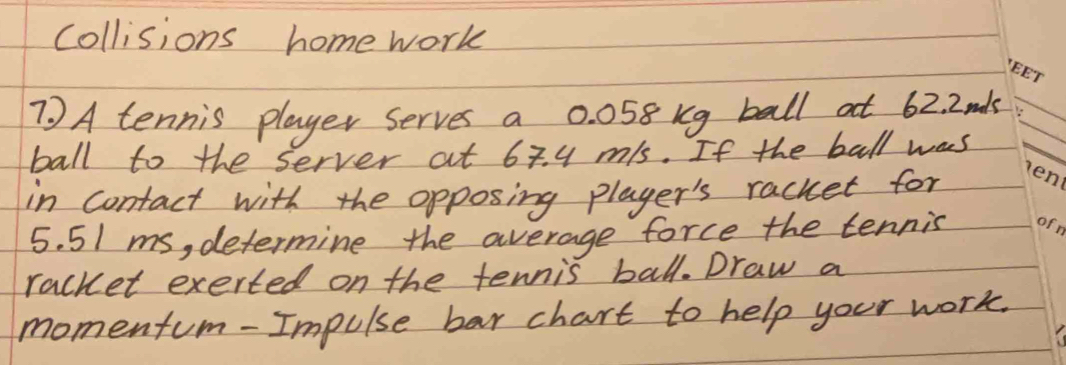 Collisions homework
7.) A tennis player serves a 0.058 kg ball at 62.2 m/s
ball to the server at 67.4 m/s. If the ball was
in contact with the opposing player's racket for
5.51 ms, determine the average force the tennis
racket exerted on the tennis ball. Draw a
momentum - Impulse bar chart to help your work.
EET